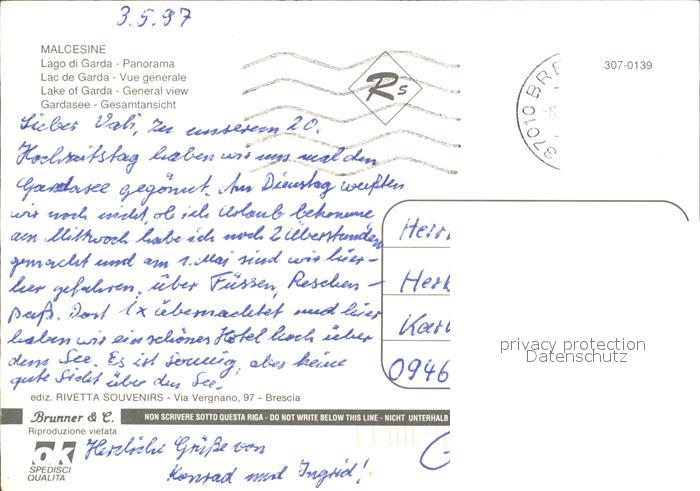 3.5.97
MALCESINE
Lago di Garda - Panorama
Lac de Garda - Vue générale
Lake of Garda - General view
Gardasee - Gesamtansicht
Rs
37010 BRE
307-0139
Lieber Vati, zu unserem 20.
Hochzeitstag haben wir uns mal den
Gardasee gegönnt. Am Dienstag wußten
wir noch nicht, ob ich Urlaub bekomme
am Mittwoch habe ich noch 2 Überstunden
gemacht und am 1. Mai sind wir hier-
her gefahren, über Füssen, Reschen-
paß. Dort 1x übernachtet und hier
haben wir ein schönes Hotel hoch über
dem See. Es ist sonnig, aber keine
gute Sicht über den See.
Herrn
Herb
Karl
0946
privacy protection
Datenschutz
ediz. RIVETTA SOUVENIRS - Via Vergnano, 97 - Brescia
Brunner & C. NON SCRIVERE SOTTO QUESTA RIGA - DO NOT WRITE BELOW THIS LINE - NICHT UNTERHALB
Riproduzione vietata
ok
SPEDISCI
QUALITA
Herzliche Grüße von
Konrad und Ingrid!